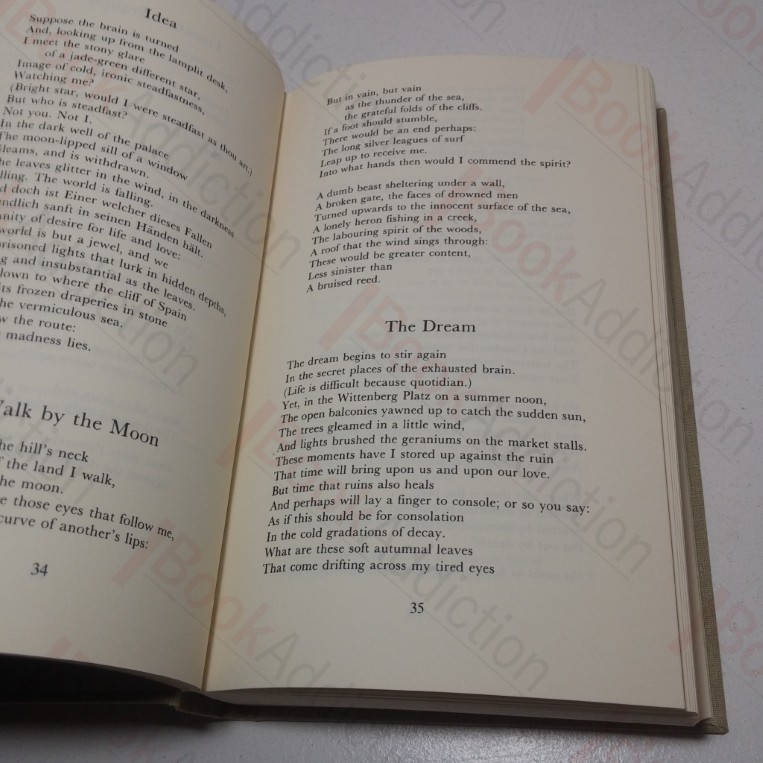 Idea
Suppose the brain is turned
And, looking up from the lamplit desk,
I meet the stony glare
of a jade-green different star,
Image of cold, ironic steadfastness,
Watching me?
(Bright star, would I were steadfast as thou art.)
But who is steadfast?
Not you. Not I.
In the dark well of the palace
The moon-lipped sill of a window
leams, and is withdrawn.
he leaves glitter in the wind, in the darkness
lling. The world is falling.
d doch ist Einer welcher dieses Fallen
ndlich sanft in seinen Händen hält.
nity of desire for life and love:
world is but a jewel, and we
risoned lights that lurk in hidden depths,
g and insubstantial as the leaves.
lown to where the cliff of Spain
ts frozen draperies in stone
he vermiculous sea.
w the route:
madness lies.
Walk by the Moon
he hill's neck
f the land I walk,
he moon.
e those eyes that follow me,
curve of another's lips:
34
But in vain, but vain
as the thunder of the sea,
the grateful folds of the cliffs.
If a foot should stumble,
There would be an end perhaps:
The long silver leagues of surf
Leap up to receive me.
Into what hands then would I commend the spirit?
A dumb beast sheltering under a wall,
A broken gate, the faces of drowned men
Turned upwards to the innocent surface of the sea,
A lonely heron fishing in a creek,
The labouring spirit of the woods,
A roof that the wind sings through:
These would be greater content,
Less sinister than
A bruised reed.
The Dream
The dream begins to stir again
In the secret places of the exhausted brain.
(Life is difficult because quotidian.)
Yet, in the Wittenberg Platz on a summer noon,
The open balconies yawned up to catch the sudden sun,
The trees gleamed in a little wind,
And lights brushed the geraniums on the market stalls.
These moments have I stored up against the ruin
That time will bring upon us and upon our love.
But time that ruins also heals
And perhaps will lay a finger to console; or so you say:
As if this should be for consolation
In the cold gradations of decay.
What are these soft autumnal leaves
That come drifting across my tired eyes
35
BookAddiction